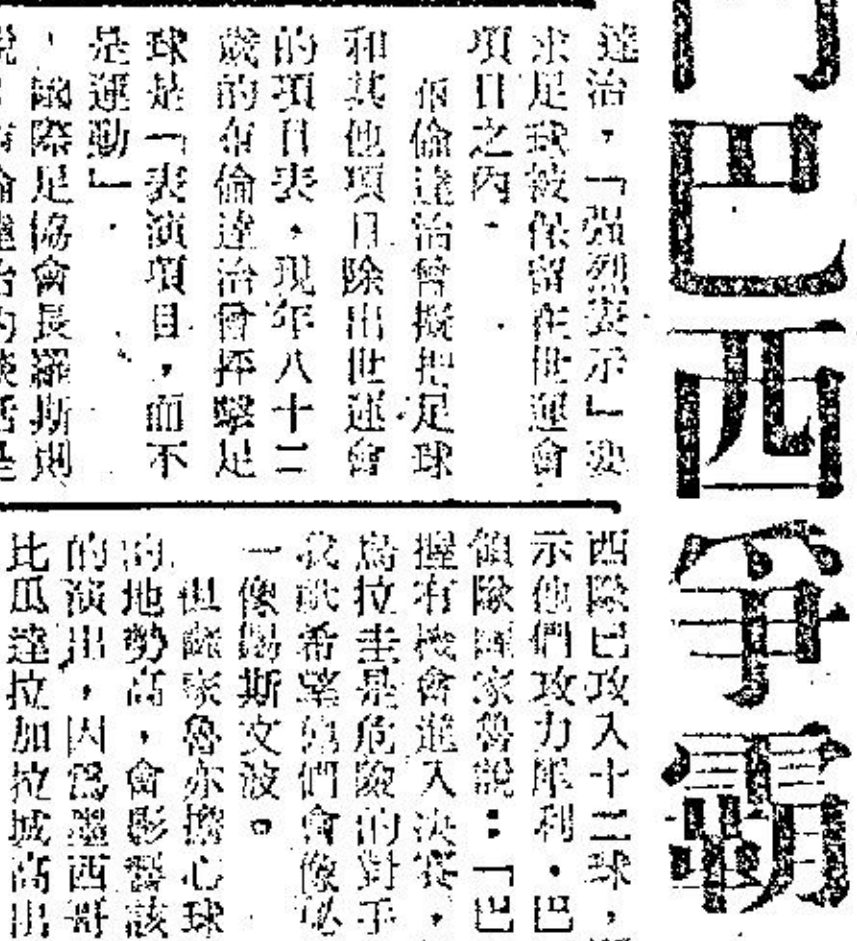 門巴西爭霸
達治,「强烈表示」要
求足球被保留在世運會
項目之內。
布倫達治曾擬把足球
和其他項目除出世運會
的項目表。現年八十二
歲的布倫達治曾抨擊足
球是「表演項目,而不
是運動」。
國際足協會長羅斯則
西隊已攻入十二球,
示他們攻力犀利。巴
領隊 家魯說:「巴
握有機會進入決賽,
烏拉圭是危險的對手
我 希望 們會像
一像 斯文波。
但 家魯亦擔心球
的地勢高,會影響該
的演出,因爲墨西哥
比瓜達拉加拉城高出